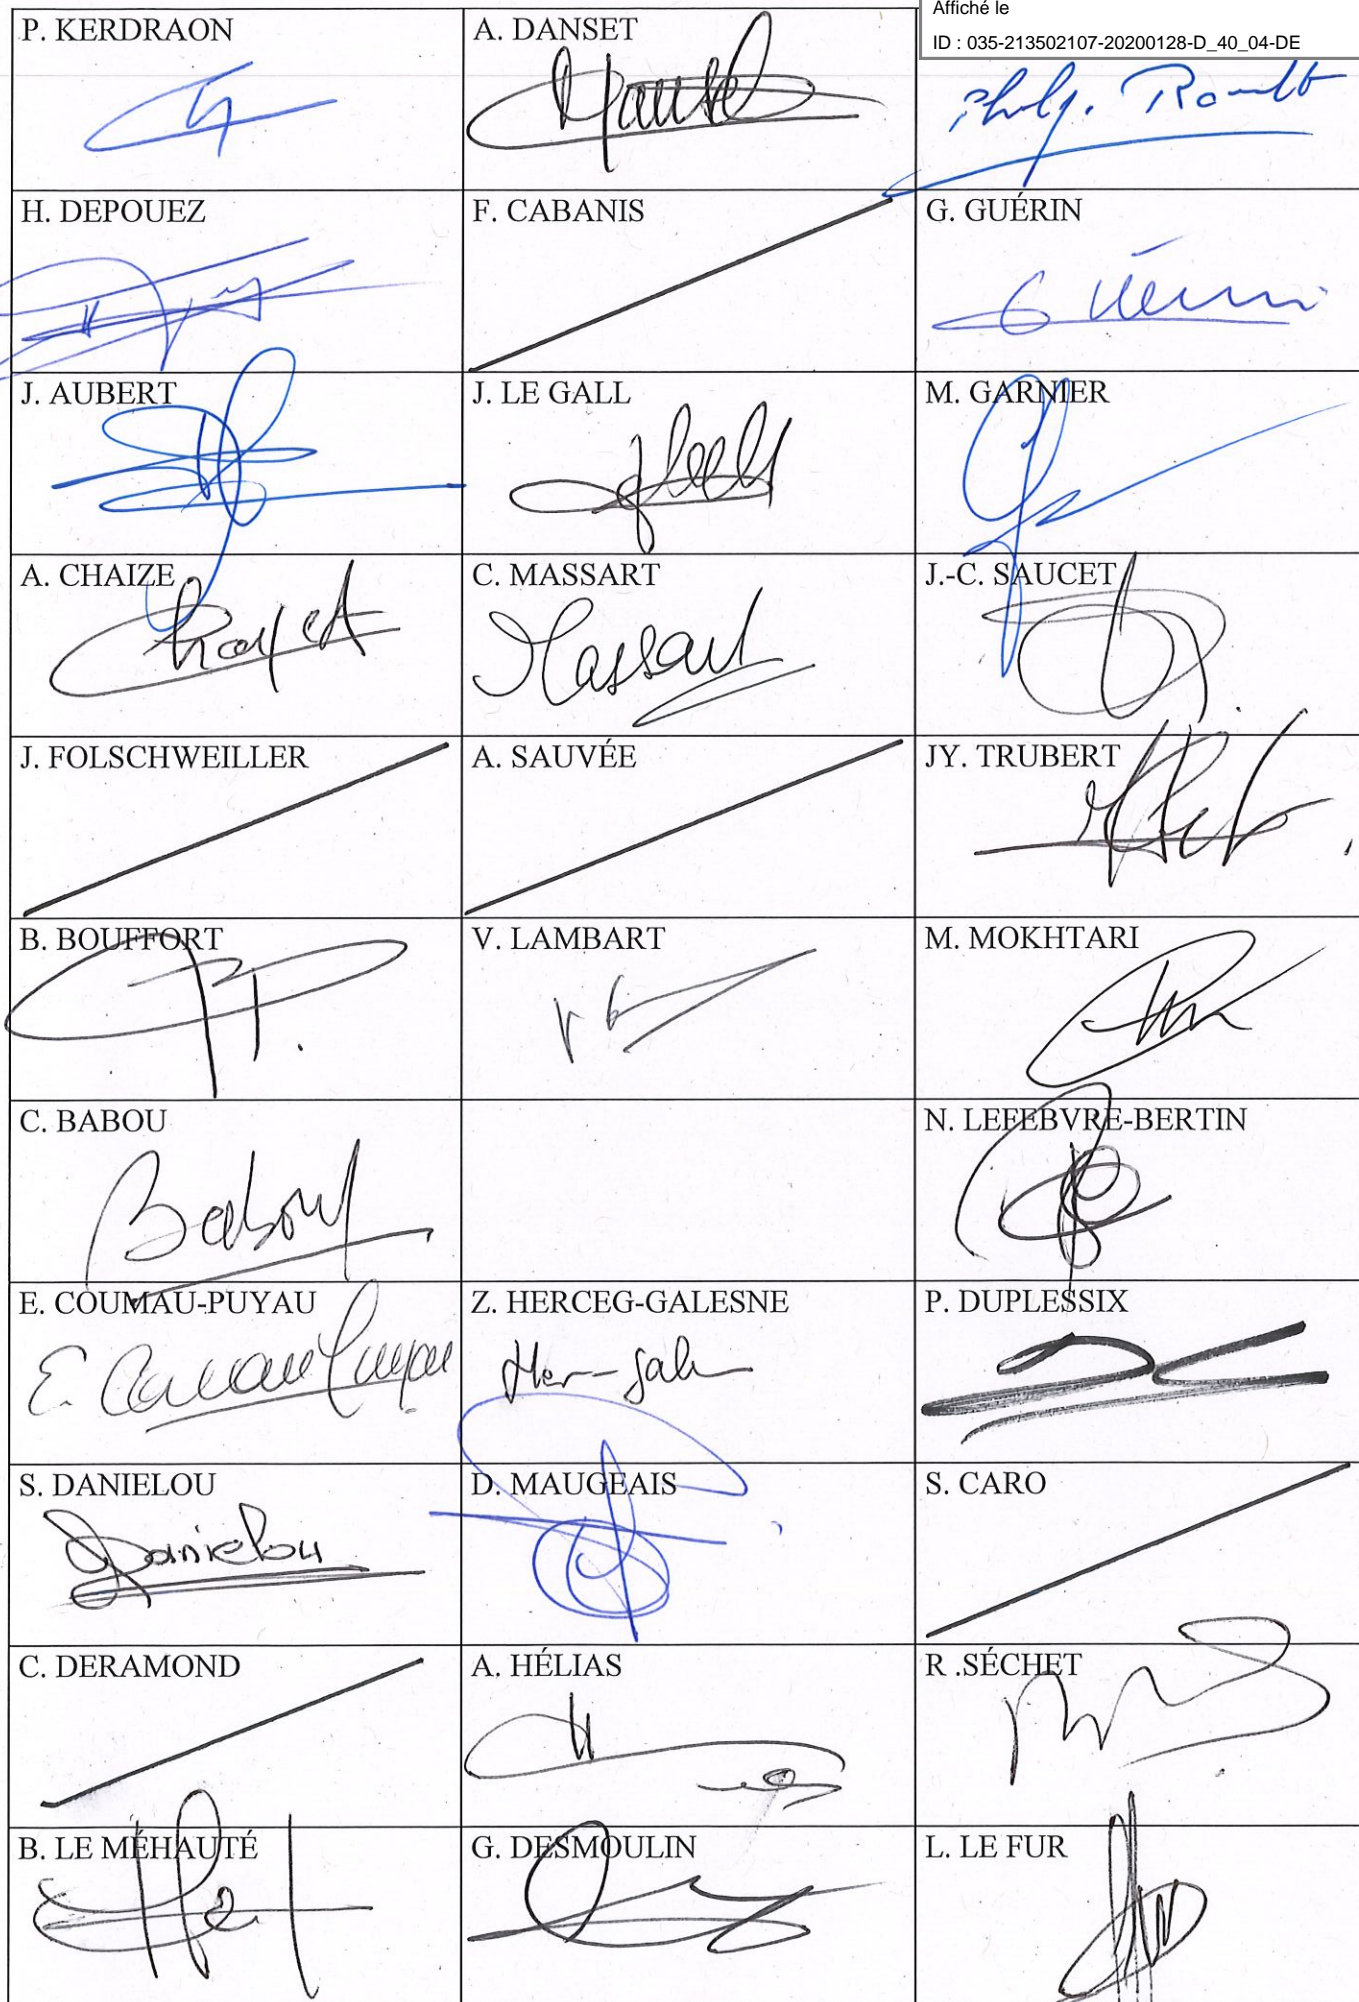 Affiché le
ID : 035-213502107-20200128-D_40_04-DE
P. KERDRAON
A. DANSET
H. DEPOUEZ
F. CABANIS
G. GUÉRIN
J. AUBERT
J. LE GALL
M. GARNIER
A. CHAIZE
C. MASSART
Massart
J.-C. SAUCET
J. FOLSCHWEILLER
A. SAUVÉE
JY. TRUBERT
B. BOUFFORT
V. LAMBART
M. MOKHTARI
C. BABOU
Babou
N. LEFEBVRE-BERTIN
E. COUMAU-PUYAU
Z. HERCEG-GALESNE
P. DUPLESSIX
S. DANIELOU
Danielou
D. MAUGEAIS
S. CARO
C. DERAMOND
A. HÉLIAS
R .SÉCHET
B. LE MÉHAUTÉ
G. DESMOULIN
L. LE FUR